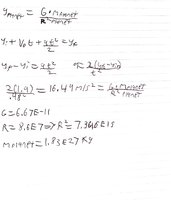 g planet = G · Mplanet / R² planet
yi + V₀t + at²/2 = yf
yf - yi = at²/2 a = 2(yf-yi)/t²
2(1.9)/.48² = 16.49 m/s² = G · Mplanet / R² planet
G = 6.67E-11
R = 8.6E7 => R² = 7.396E15
Mplanet = 1.83E27 kg